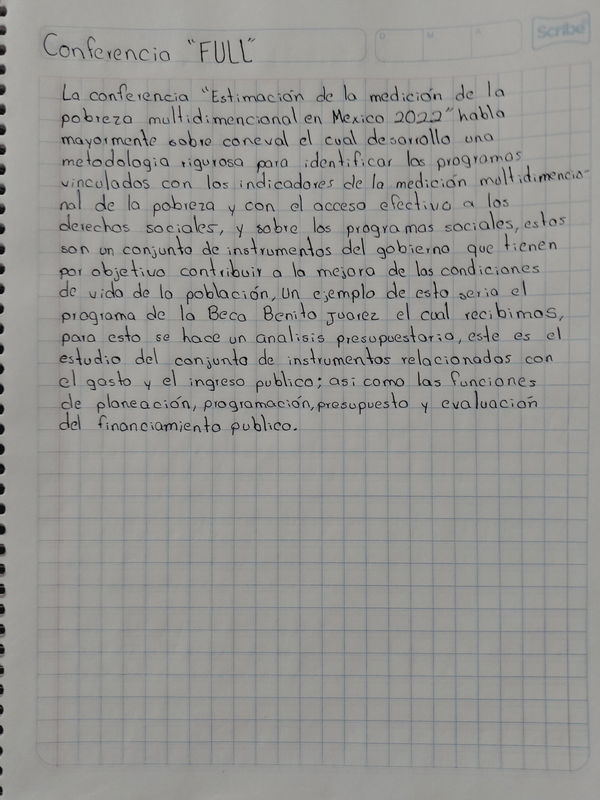 Conferencia "FULL"
D M A
Scribe
La conferencia "Estimación de la medición de la
pobreza multidimencional en Mexico 2022" habla
mayormente sobre coneval el cual desarollo una
metodologia rigurosa para identificar los programas
vinculados con los indicadores de la medición multidimencio-
nal de la pobreza y con el acceso efectivo a los
derechos sociales, y sobre los programas sociales, estos
son un conjunto de instrumentos del gobierno que tienen
por objetivo contribuir a la mejora de las condiciones
de vida de la población, Un ejemplo de esto seria el
programa de la Beca Benito Juarez el cual recibimos,
para esto se hace un analisis presupuestario, este es el
estudio del conjunto de instrumentos relacionados con
el gasto y el ingreso publico; asi como las funciones
de planeación, programación, presupuesto y evaluación
del financiamiento publico.